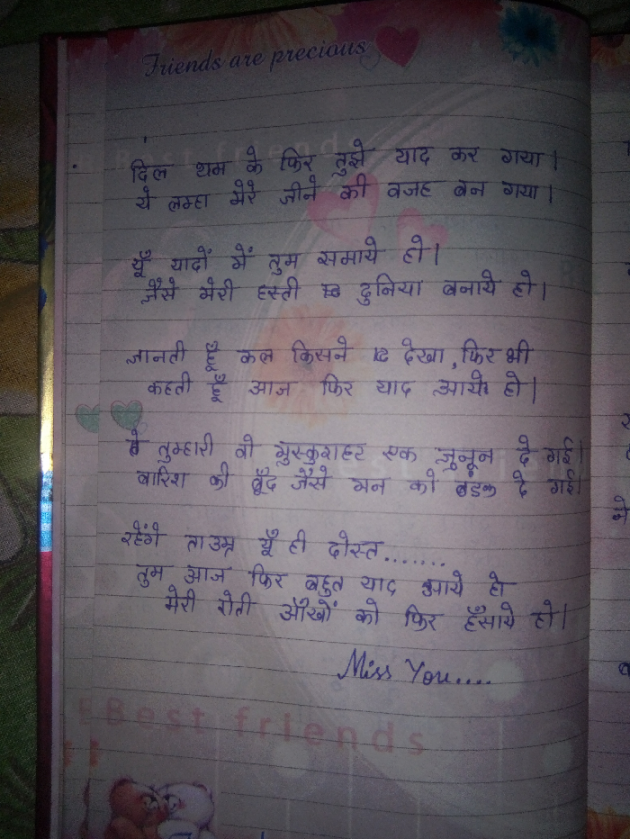 Friends are precious
Best friends
दिल थाम के फिर तुझे याद कर गया।
ये लम्हा मेरे जीने की वजह बन गया।
यूँ यादों में तुम समाये हो।
जैसे मेरी हस्ती दुनिया बनाये हो।
जानती हूँ कल किसने देखा, फिर भी
कहती हूँ आज फिर याद आये हो।
तुम्हारी वो मुस्कुराहट एक जुनून दे गई।
बारिश की बूँद जैसे मन को ठंडक दे गई।
रहेंगे ता उम्र यूँ ही दोस्त.......
तुम आज फिर बहुत याद आये हो
मेरी रोती आँखों को फिर हँसाये हो।
Miss You....
Best friends